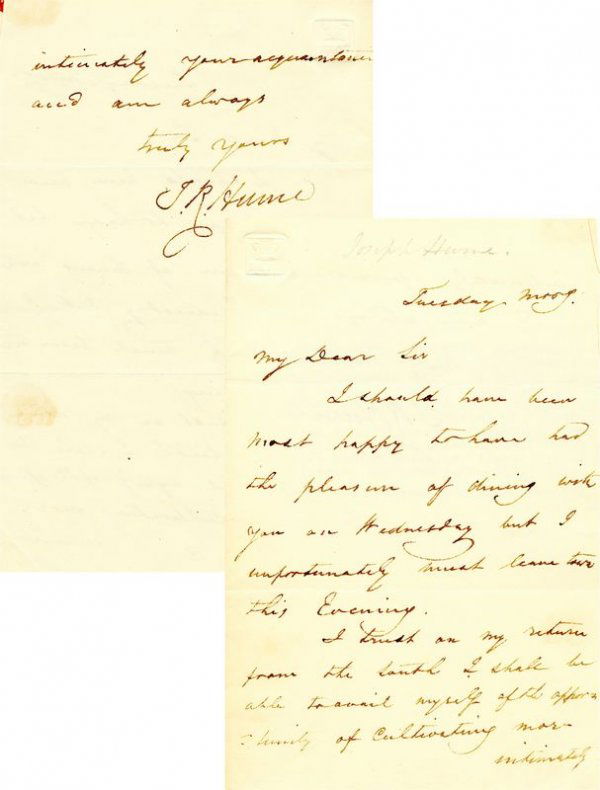 Joseph Hume.
Tuesday Morng.
My Dear Sir
I should have been
most happy to have had
the pleasure of dining with
you on Wednesday but I
unfortunately must leave town
this Evening.
I trust on my return
from the South I shall be
able to avail myself of the oppor
tunity of Cultivating more
intimately
intimately your acquaintance
and am always
truly yours
J. R. Hume